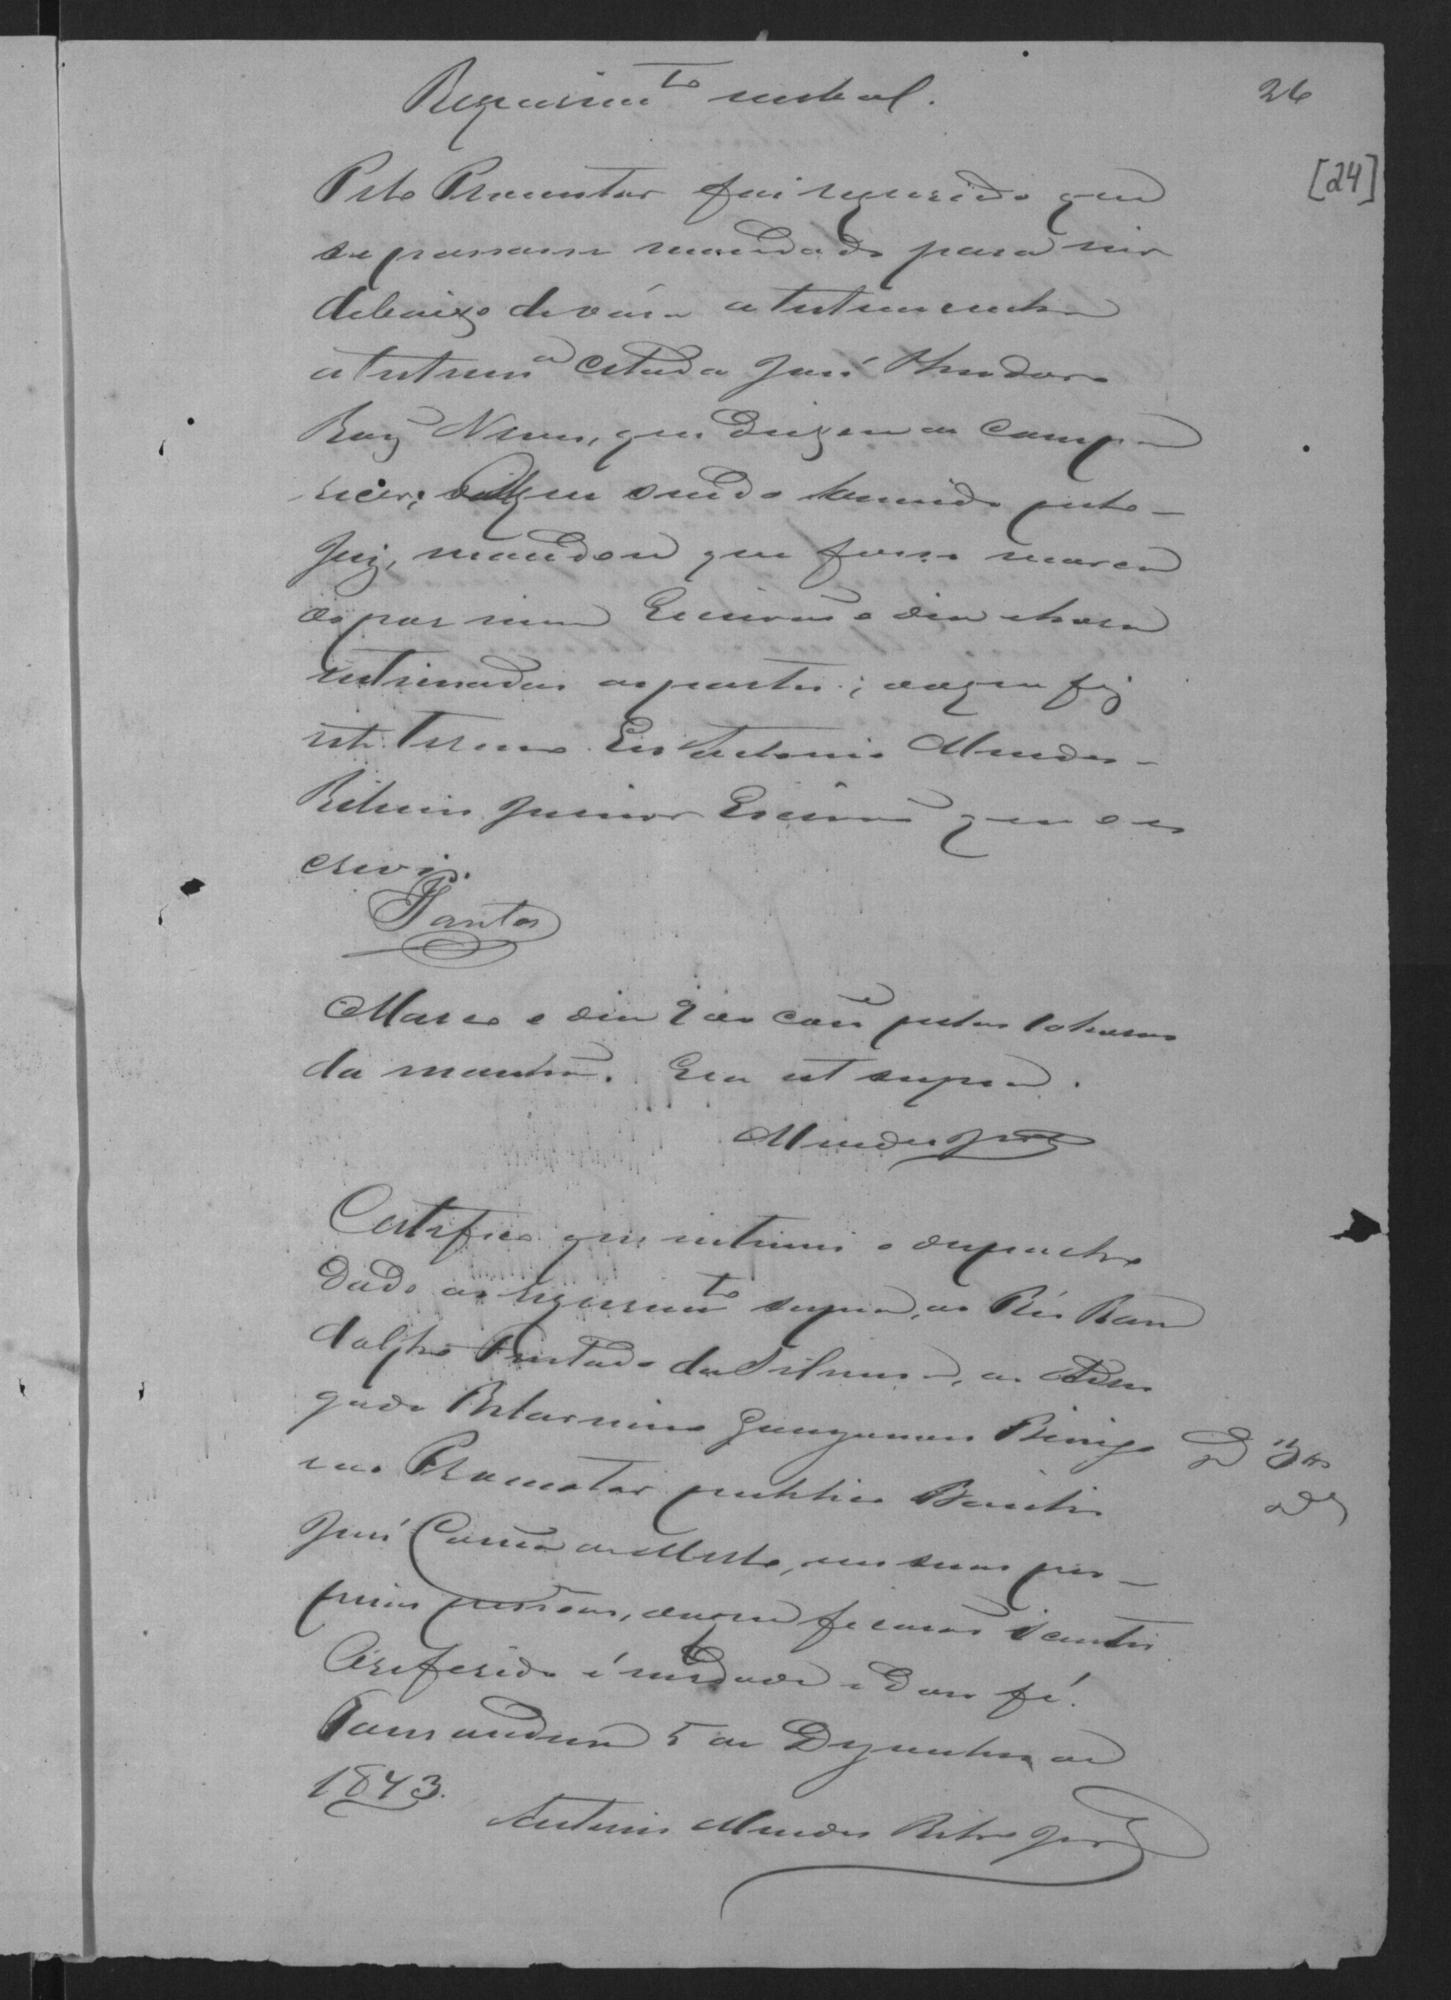 Requerim.to verbal.
26
[24]
Pelo Promotor foi requerido que
se passasse mandado para vir
debaixo de vára a testemunha
a testem.a citada José Theodoro
Nunes, que deixou de compa
recer; sendo ouvido pelo
Juiz, mandou que fosse marca
do por mim Escrivão o dia e hora
intimadas as partes; do que fiz
este Termo. Eu Antonio Mendes
Ribeiro Junior Escrivão que o es
crevi.
Santos
Marco o dia 9 do pelas 10 horas
da manhã. Era ut supra.
Mendes Jor
Certifico que intimei o despacho
dado ao requerim.to supra, ao Réo Ran
dolpho Furtado da Silveira, ao Advo
gado Belarmino
e ao Promotor publico
José, em suas pro
prias pessoas, do que ficarão scientes
O referido é verdade e dou fé.
5 de Dezembro de
1873.
Antonio Mendes Ribro Jor